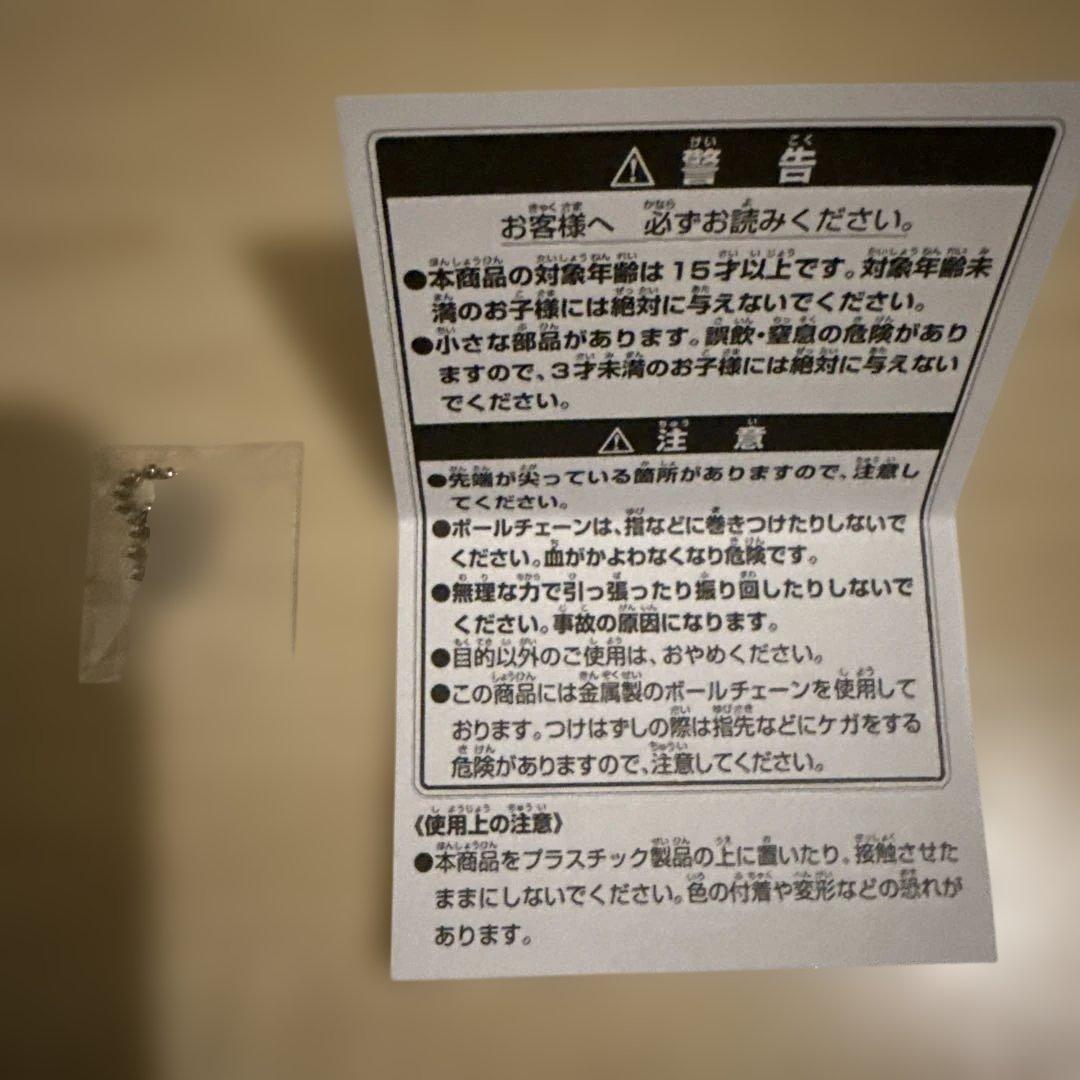 ⚠ 警告
お客様へ 必ずお読みください。
●本商品の対象年齢は15才以上です。対象年齢未
満のお子様には絶対に与えないでください。
●小さな部品があります。誤飲・窒息の危険があり
ますので、3才未満のお子様には絶対に与えない
でください。
⚠ 注意
●先端が尖っている箇所がありますので、注意し
てください。
●ボールチェーンは、指などに巻きつけたりしないで
ください。血がかよわなくなり危険です。
●無理な力で引っ張ったり振り回したりしないで
ください。事故の原因になります。
●目的以外のご使用は、おやめください。
●この商品には金属製のボールチェーンを使用して
おります。つけはずしの際は指先などにケガをする
危険がありますので、注意してください。
《使用上の注意》
●本商品をプラスチック製品の上に置いたり、接触させた
ままにしないでください。色の付着や変形などの恐れが
あります。